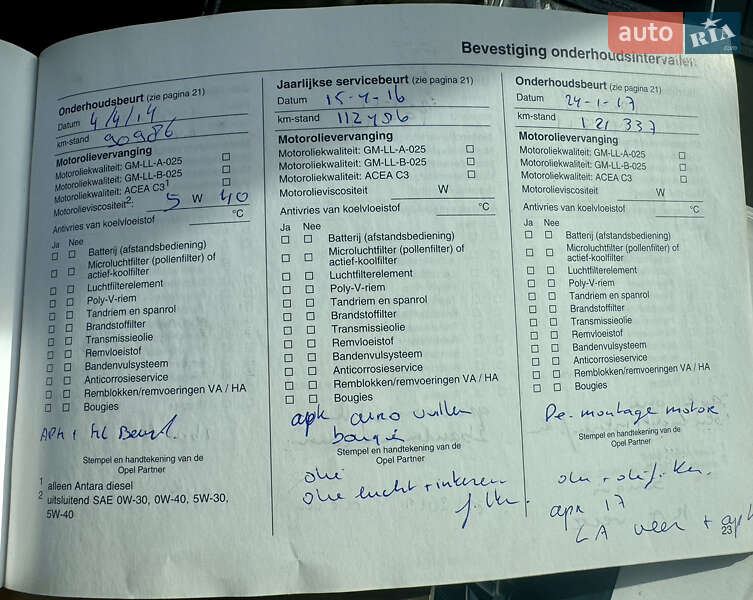 auto RIA .com
Bevestiging onderhoudsintervallen
Onderhoudsbeurt (zie pagina 21)
Datum 4/4/14
km-stand 90986
Motorolievervanging
Motoroliekwaliteit: GM-LL-A-025
Motoroliekwaliteit: GM-LL-B-025
Motoroliekwaliteit: ACEA C3¹
Motorolieviscositeit²: 5 W 40
Antivries van koelvloeistof °C
Ja Nee
Batterij (afstandsbediening)
Microluchtfilter (pollenfilter) of
actief-koolfilter
Luchtfilterelement
Poly-V-riem
Tandriem en spanrol
Brandstoffilter
Transmissieolie
Remvloeistof
Bandenvulsysteem
Anticorrosieservice
Remblokken/remvoeringen VA / HA
Bougies
APK + kl Beurt.
Stempel en handtekening van de
Opel Partner
1 alleen Antara diesel
2 uitsluitend SAE 0W-30, 0W-40, 5W-30,
5W-40
Jaarlijkse servicebeurt (zie pagina 21)
Datum 15-4-16
km-stand 112486
Motorolievervanging
Motoroliekwaliteit: GM-LL-A-025
Motoroliekwaliteit: GM-LL-B-025
Motoroliekwaliteit: ACEA C3
Motorolieviscositeit W
Antivries van koelvloeistof °C
Ja Nee
Batterij (afstandsbediening)
Microluchtfilter (pollenfilter) of
actief-koolfilter
Luchtfilterelement
Poly-V-riem
Tandriem en spanrol
Brandstoffilter
Transmissieolie
Remvloeistof
Bandenvulsysteem
Anticorrosieservice
Remblokken/remvoeringen VA / HA
Bougies
apk
bougie
Stempel en handtekening van de
Opel Partner
olie
olie lucht + interieur
filter.
Onderhoudsbeurt (zie pagina 21)
Datum 24-1-17
km-stand 121337
Motorolievervanging
Motoroliekwaliteit: GM-LL-A-025
Motoroliekwaliteit: GM-LL-B-025
Motoroliekwaliteit: ACEA C3
Motorolieviscositeit W
Antivries van koelvloeistof °C
Ja Nee
Batterij (afstandsbediening)
Microluchtfilter (pollenfilter) of
actief-koolfilter
Luchtfilterelement
Poly-V-riem
Tandriem en spanrol
Brandstoffilter
Transmissieolie
Remvloeistof
Bandenvulsysteem
Anticorrosieservice
Remblokken/remvoeringen VA / HA
Bougies
De-montage motor
Stempel en handtekening van de
Opel Partner
olie + oliefilter.
apk 17
LA veer + apk
23